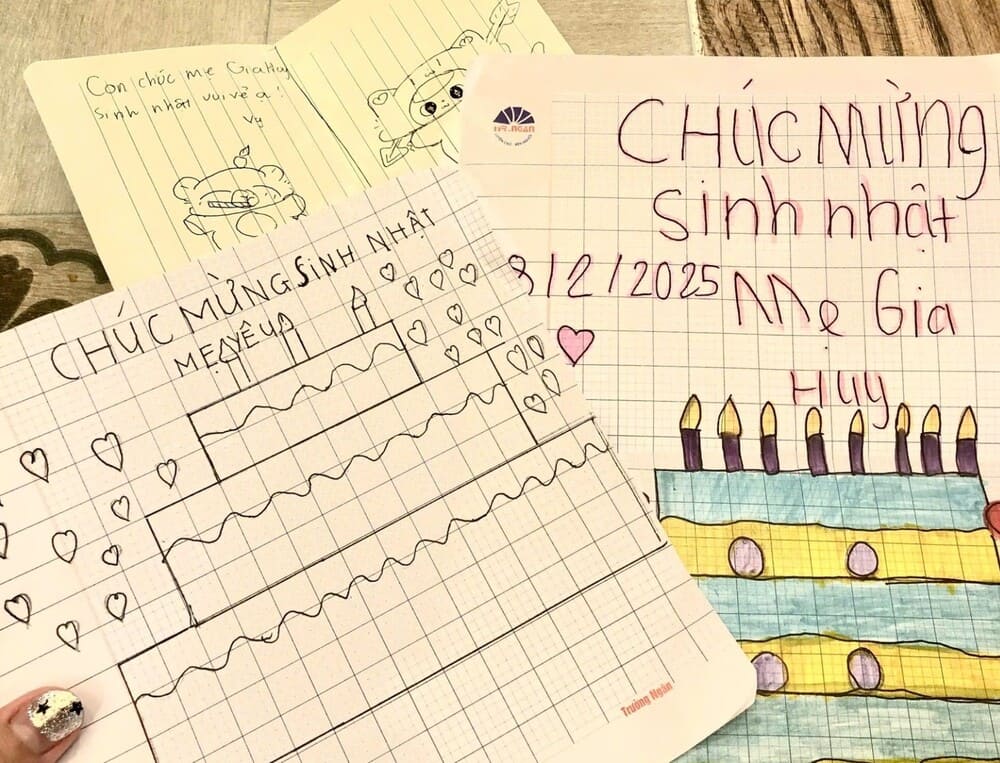 Con chúc mẹ Gia Huy
sinh nhật vui vẻ ạ!
Vy
CHÚC MỪNG SINH NHẬT
MẸ YÊU
Trường Ngân
TR.NGAN
CHÚC MỪNG
sinh nhật
/2/2025 Mẹ Gia
Huy